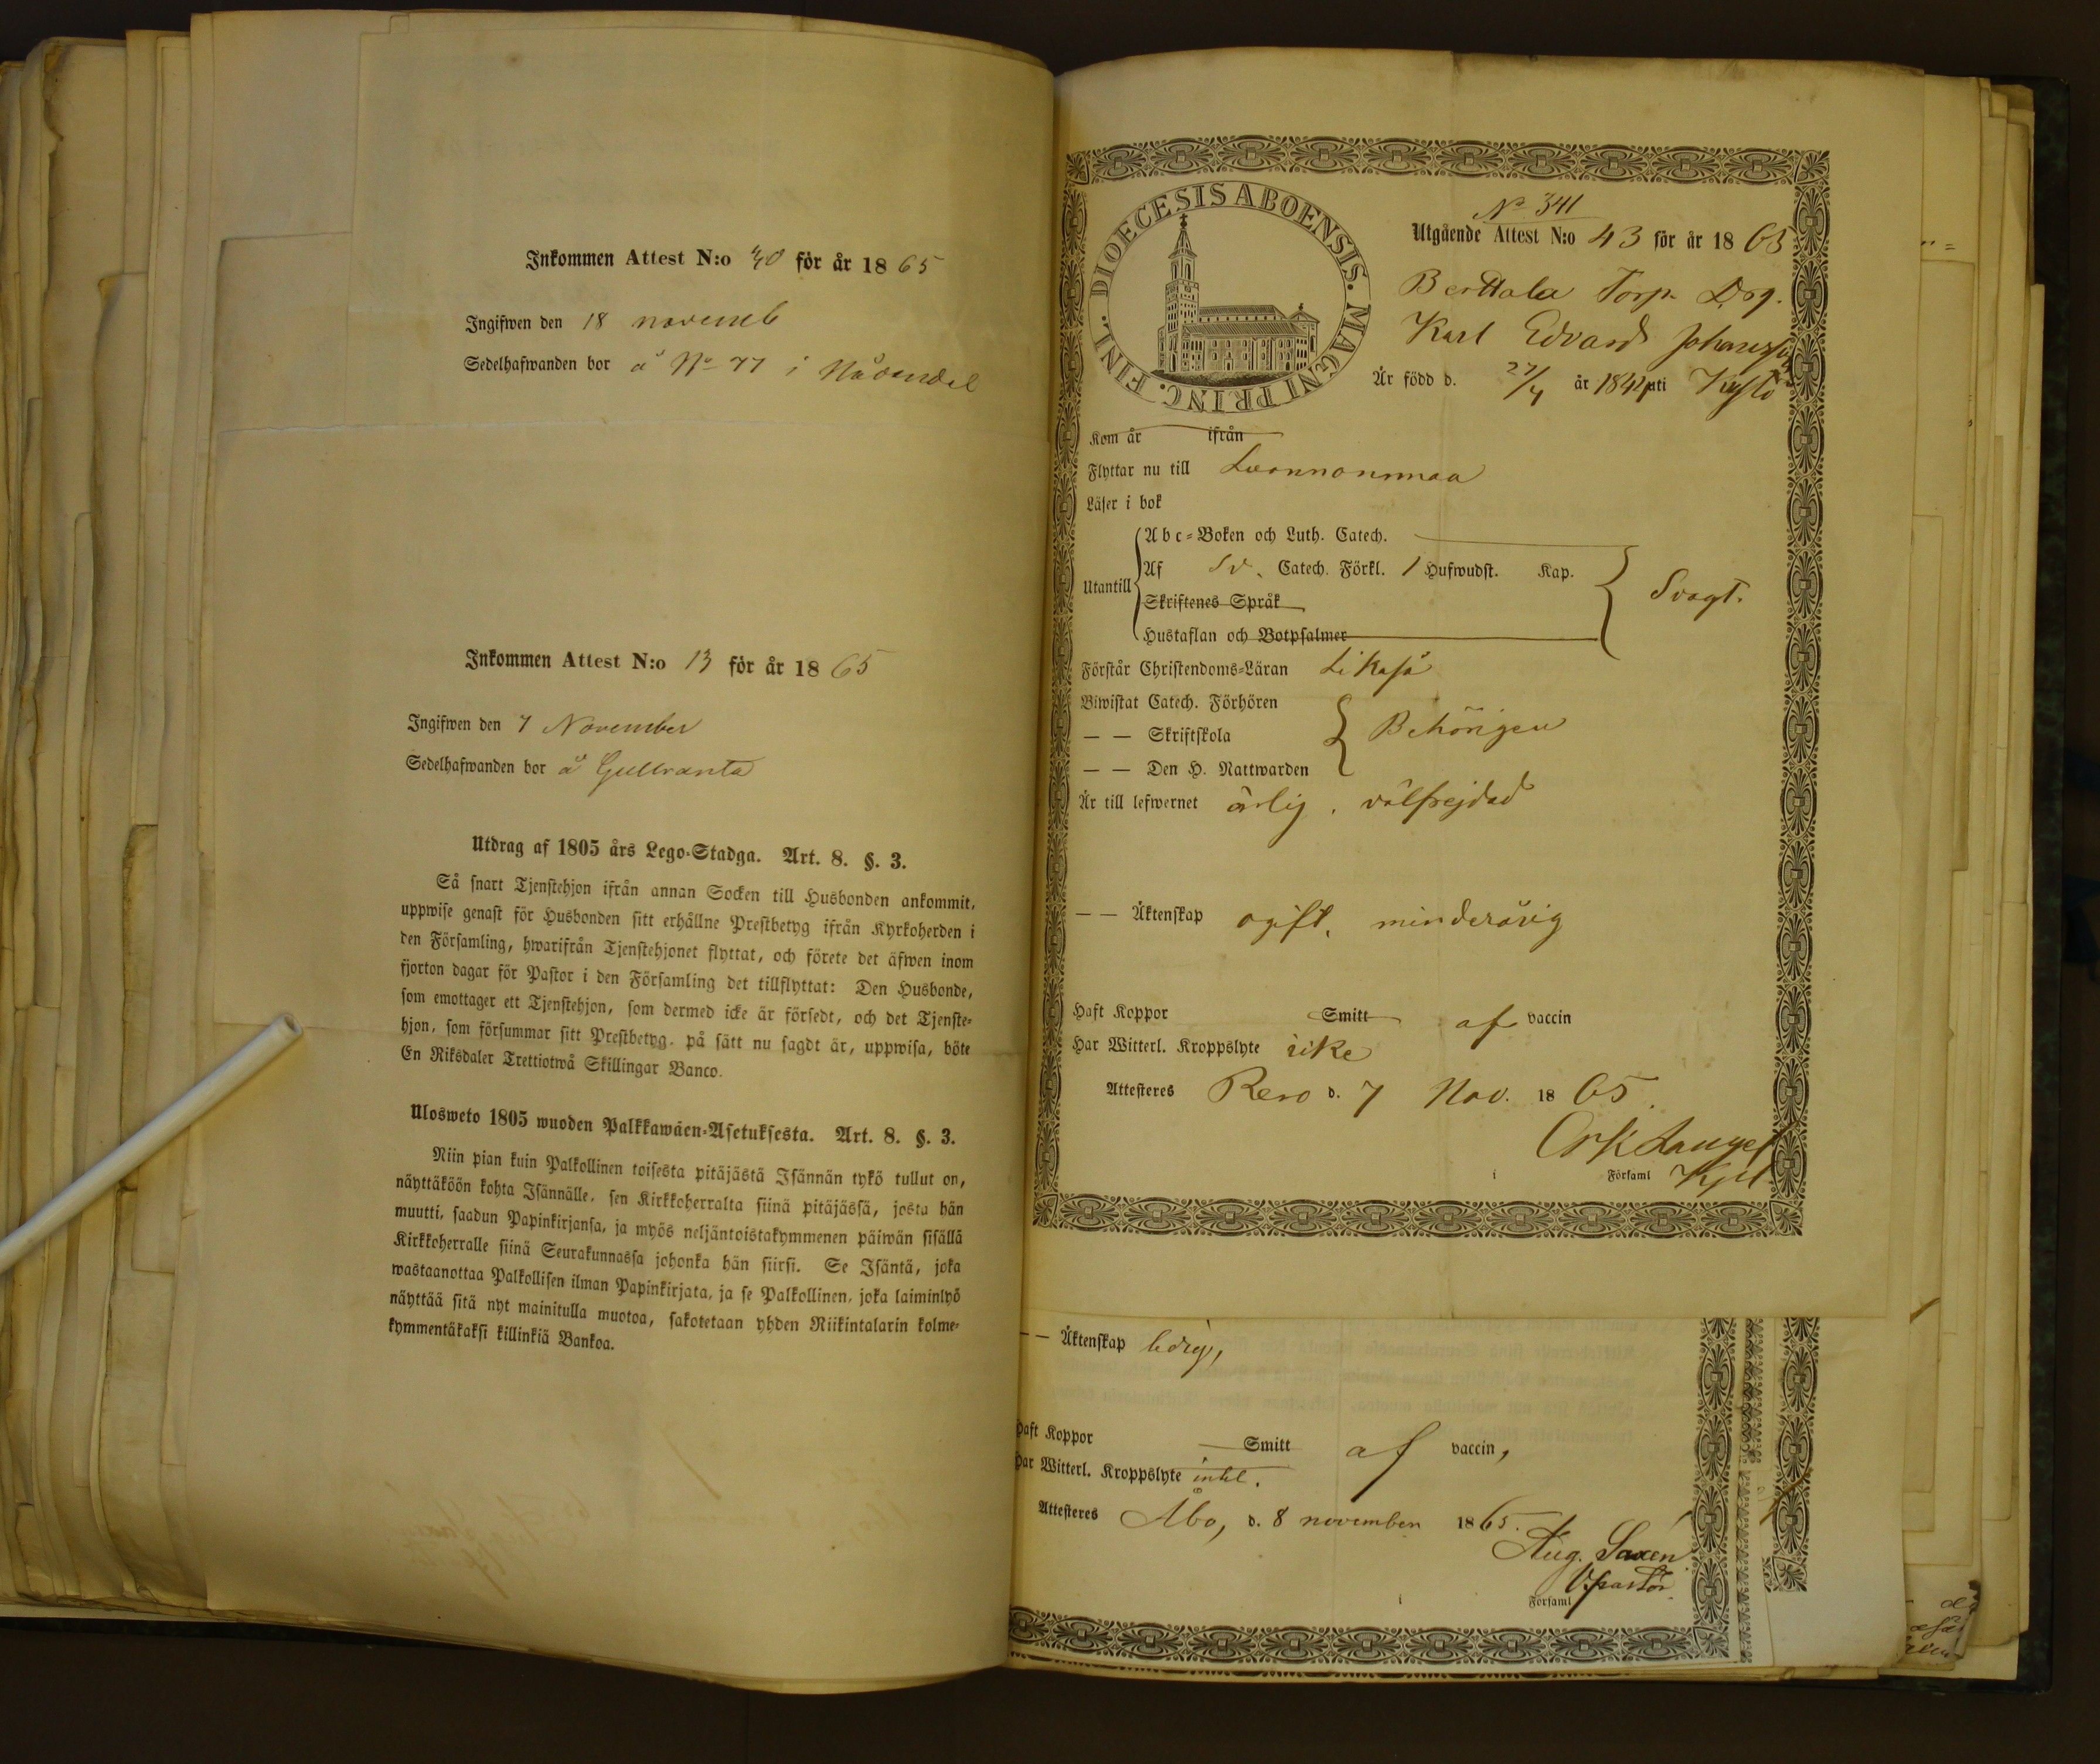 Inkommen Attest N:o 30 för år 1865
Ingifwen den 18 novemb
Sedelhafwanden bor å No 77 i Nådendal
Inkommen Attest N:o 13 för år 1865
Ingifwen den 7 November
Sedelhafwanden bor å Gullranta
Utdrag af 1805 års Lego-Stadga. Art. 8. §. 3.
Så snart Tjenstehjon ifrån annan Socken till Husbonden ankommit,
uppwise genast för Husbonden sitt erhållne Prestbetyg ifrån Kyrkoherden i
den Församling, hwarifrån Tjenstehjonet flyttat, och förete det äfwen inom
fjorton dagar för Pastor i den Församling det tillflyttat: Den Husbonde,
som emottager ett Tjenstehjon, som dermed icke är försedt, och det Tjenste-
hjon, som försummar sitt Prestbetyg, på sätt nu sagdt är, uppwisa, böte
En Riksdaler Trettiotwå Skillingar Banco.
Ulosweto 1805 wuoden Palkkawäen-Asetuksesta. Art. 8. §. 3.
Niin pian kuin Palkollinen toisesta pitäjästä Isännän tykö tullut on,
näyttäköön kohta Isännälle, sen Kirkkoherralta siinä pitäjässä, josta hän
muutti, saadun Papinkirjansa, ja myös neljäntoistakymmenen päiwän sisällä
Kirkkoherralle siinä Seurakunnassa johonka hän siirsi. Se Isäntä, joka
wastaanottaa Palkollisen ilman Papinkirjata, ja se Palkollinen, joka laiminlyö
näyttää sitä nyt mainitulla muotoa, sakotetaan yhden Riikintalarin kolme-
kymmentäkaksi killinkiä Bankoa.
DIOECESIS ABOENSIS. MAGNI PRINC. FINL.
No 341
Utgående Attest N:o 43 för år 1865
Berttala Torp. Drg.
Karl Edvard Johansson
Är född d. 27/4 år 184 uti
Kom år ifrån
Flyttar nu till Luonnonmaa
Läser i bok
Utantill
Abc-Boken och Luth. Catech.
Af Sv. Catech. Förkl. 1 Hufwudst. Kap.
Skriftenes Språk
Hustaflan och Botpsalmer
Svagt.
Förstår Christendoms-Läran Likaså
Biwistat Catech. Förhören
— — Skriftskola
— — Den H. Nattwarden
Behörigen
Är till lefwernet ärlig, välfrejdad
— — Äktenskap ogift, minderårig
Haft Koppor Smitt af vaccin
Har Witterl. Kroppslyte icke
Attesteres Reso d. 7 Nov. 1865.
i Församl
— — Äktenskap ledig,
Haft Koppor Smitt af vaccin,
Har Witterl. Kroppslyte intet.
Attesteres Åbo, d. 8 november 1865.
Aug. Saxén
V. pastor
i Församl